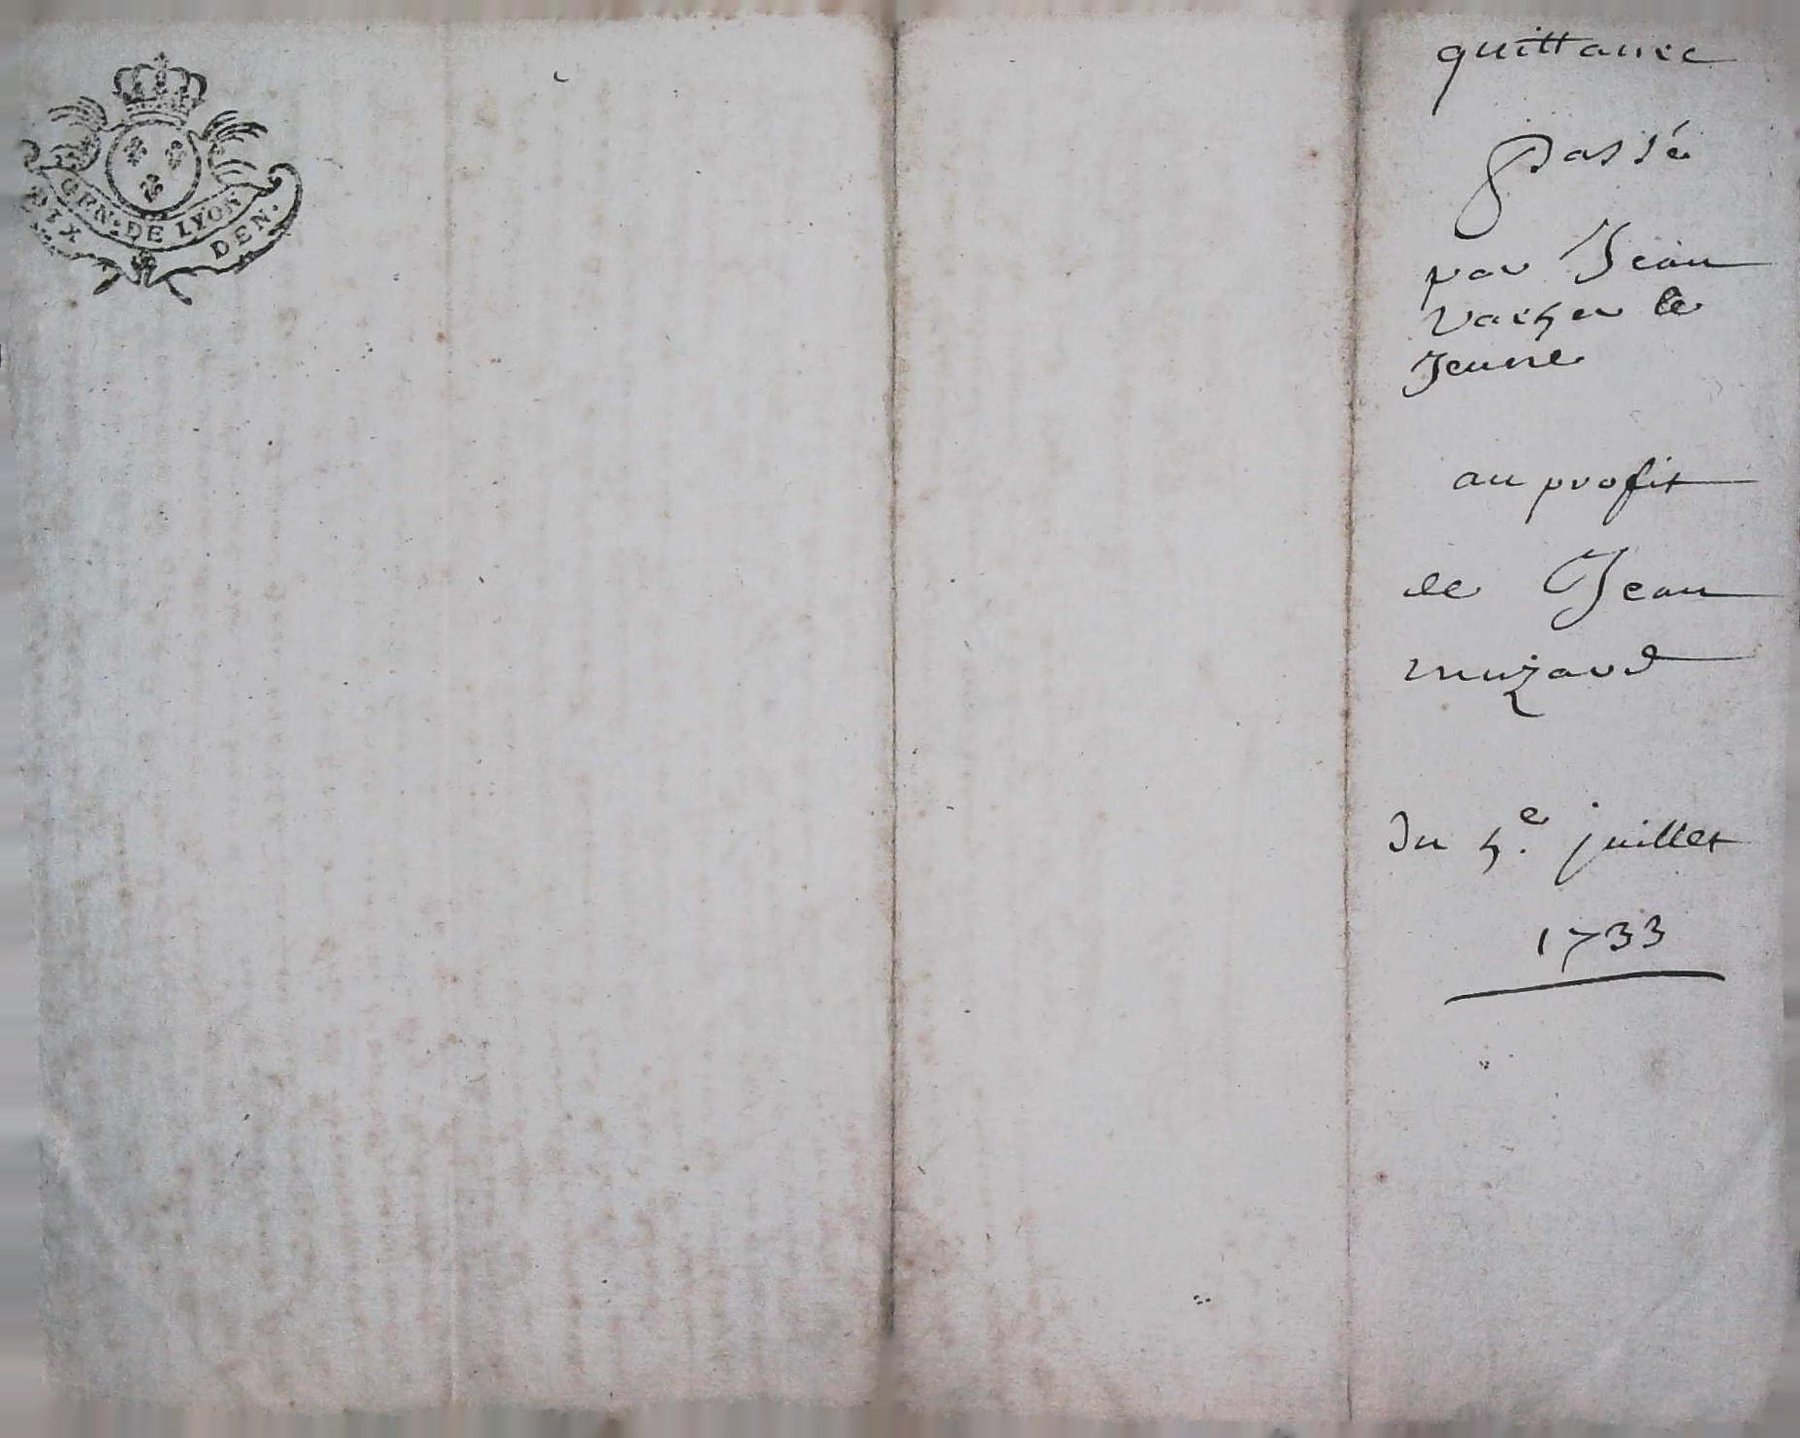 GEN. DE LYON
DIX DEN.
quittance
passé
par Jean
Vacher le
Jeune
au profit
de Jean
muzard
Du 5.e juillet
1733